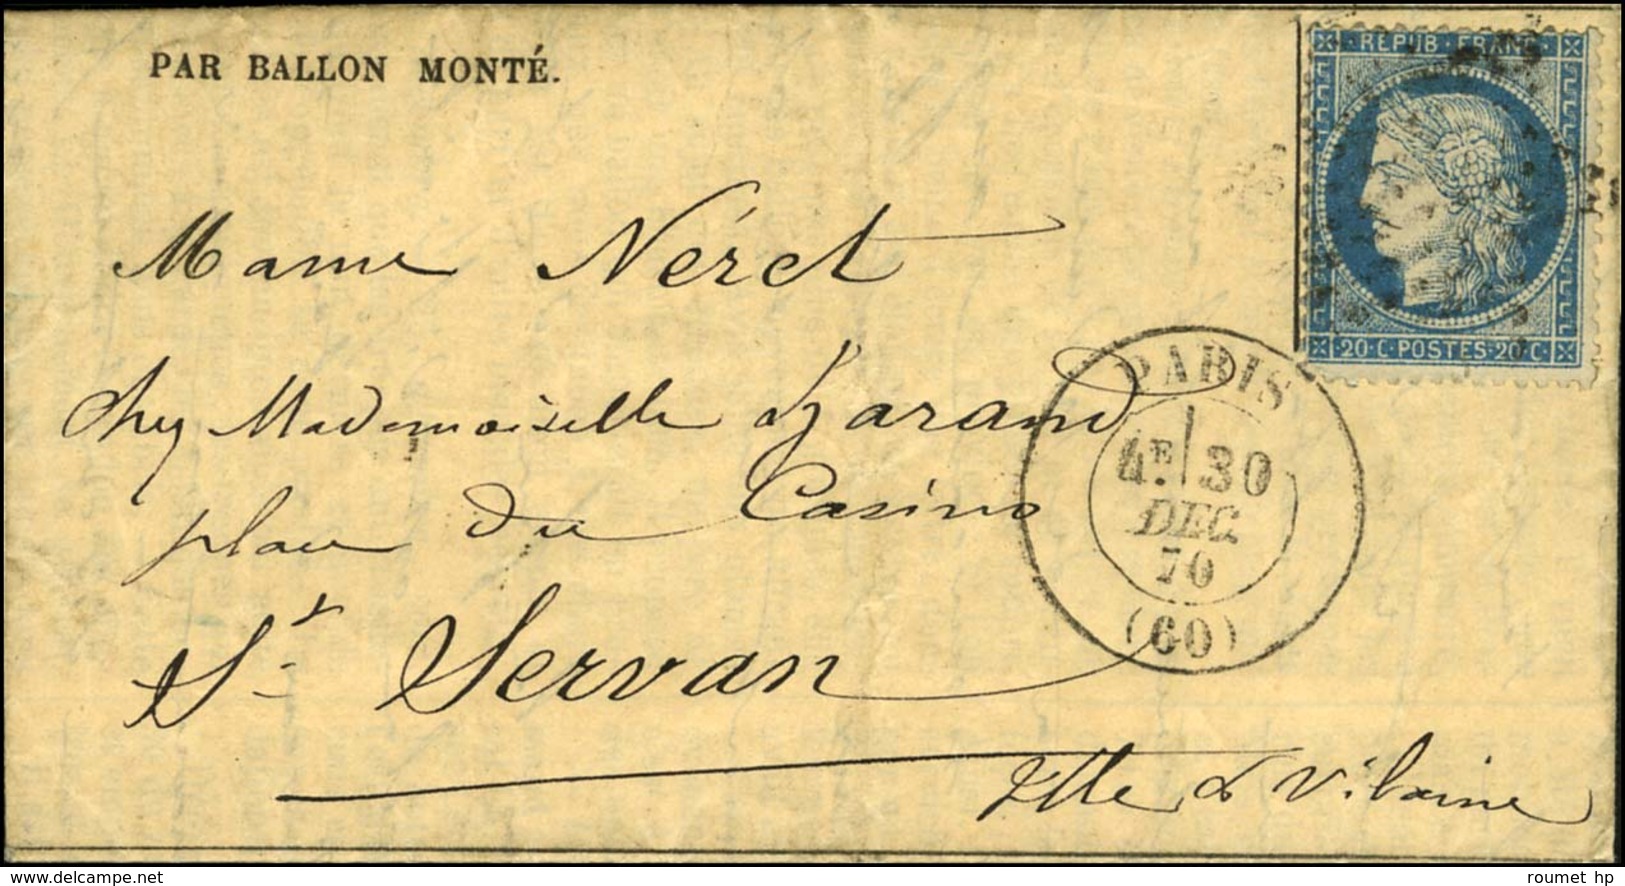 PAR BALLON MONTÉ.
REPUB. FRANC.
20·C·POSTES·20·C
Mame Néret
Chez Mademoiselle
place du Casino
St Servan
Ille & Vilaine
PARIS
4E 30
DEC.
70
(60)
delcampe.net
roumet hp